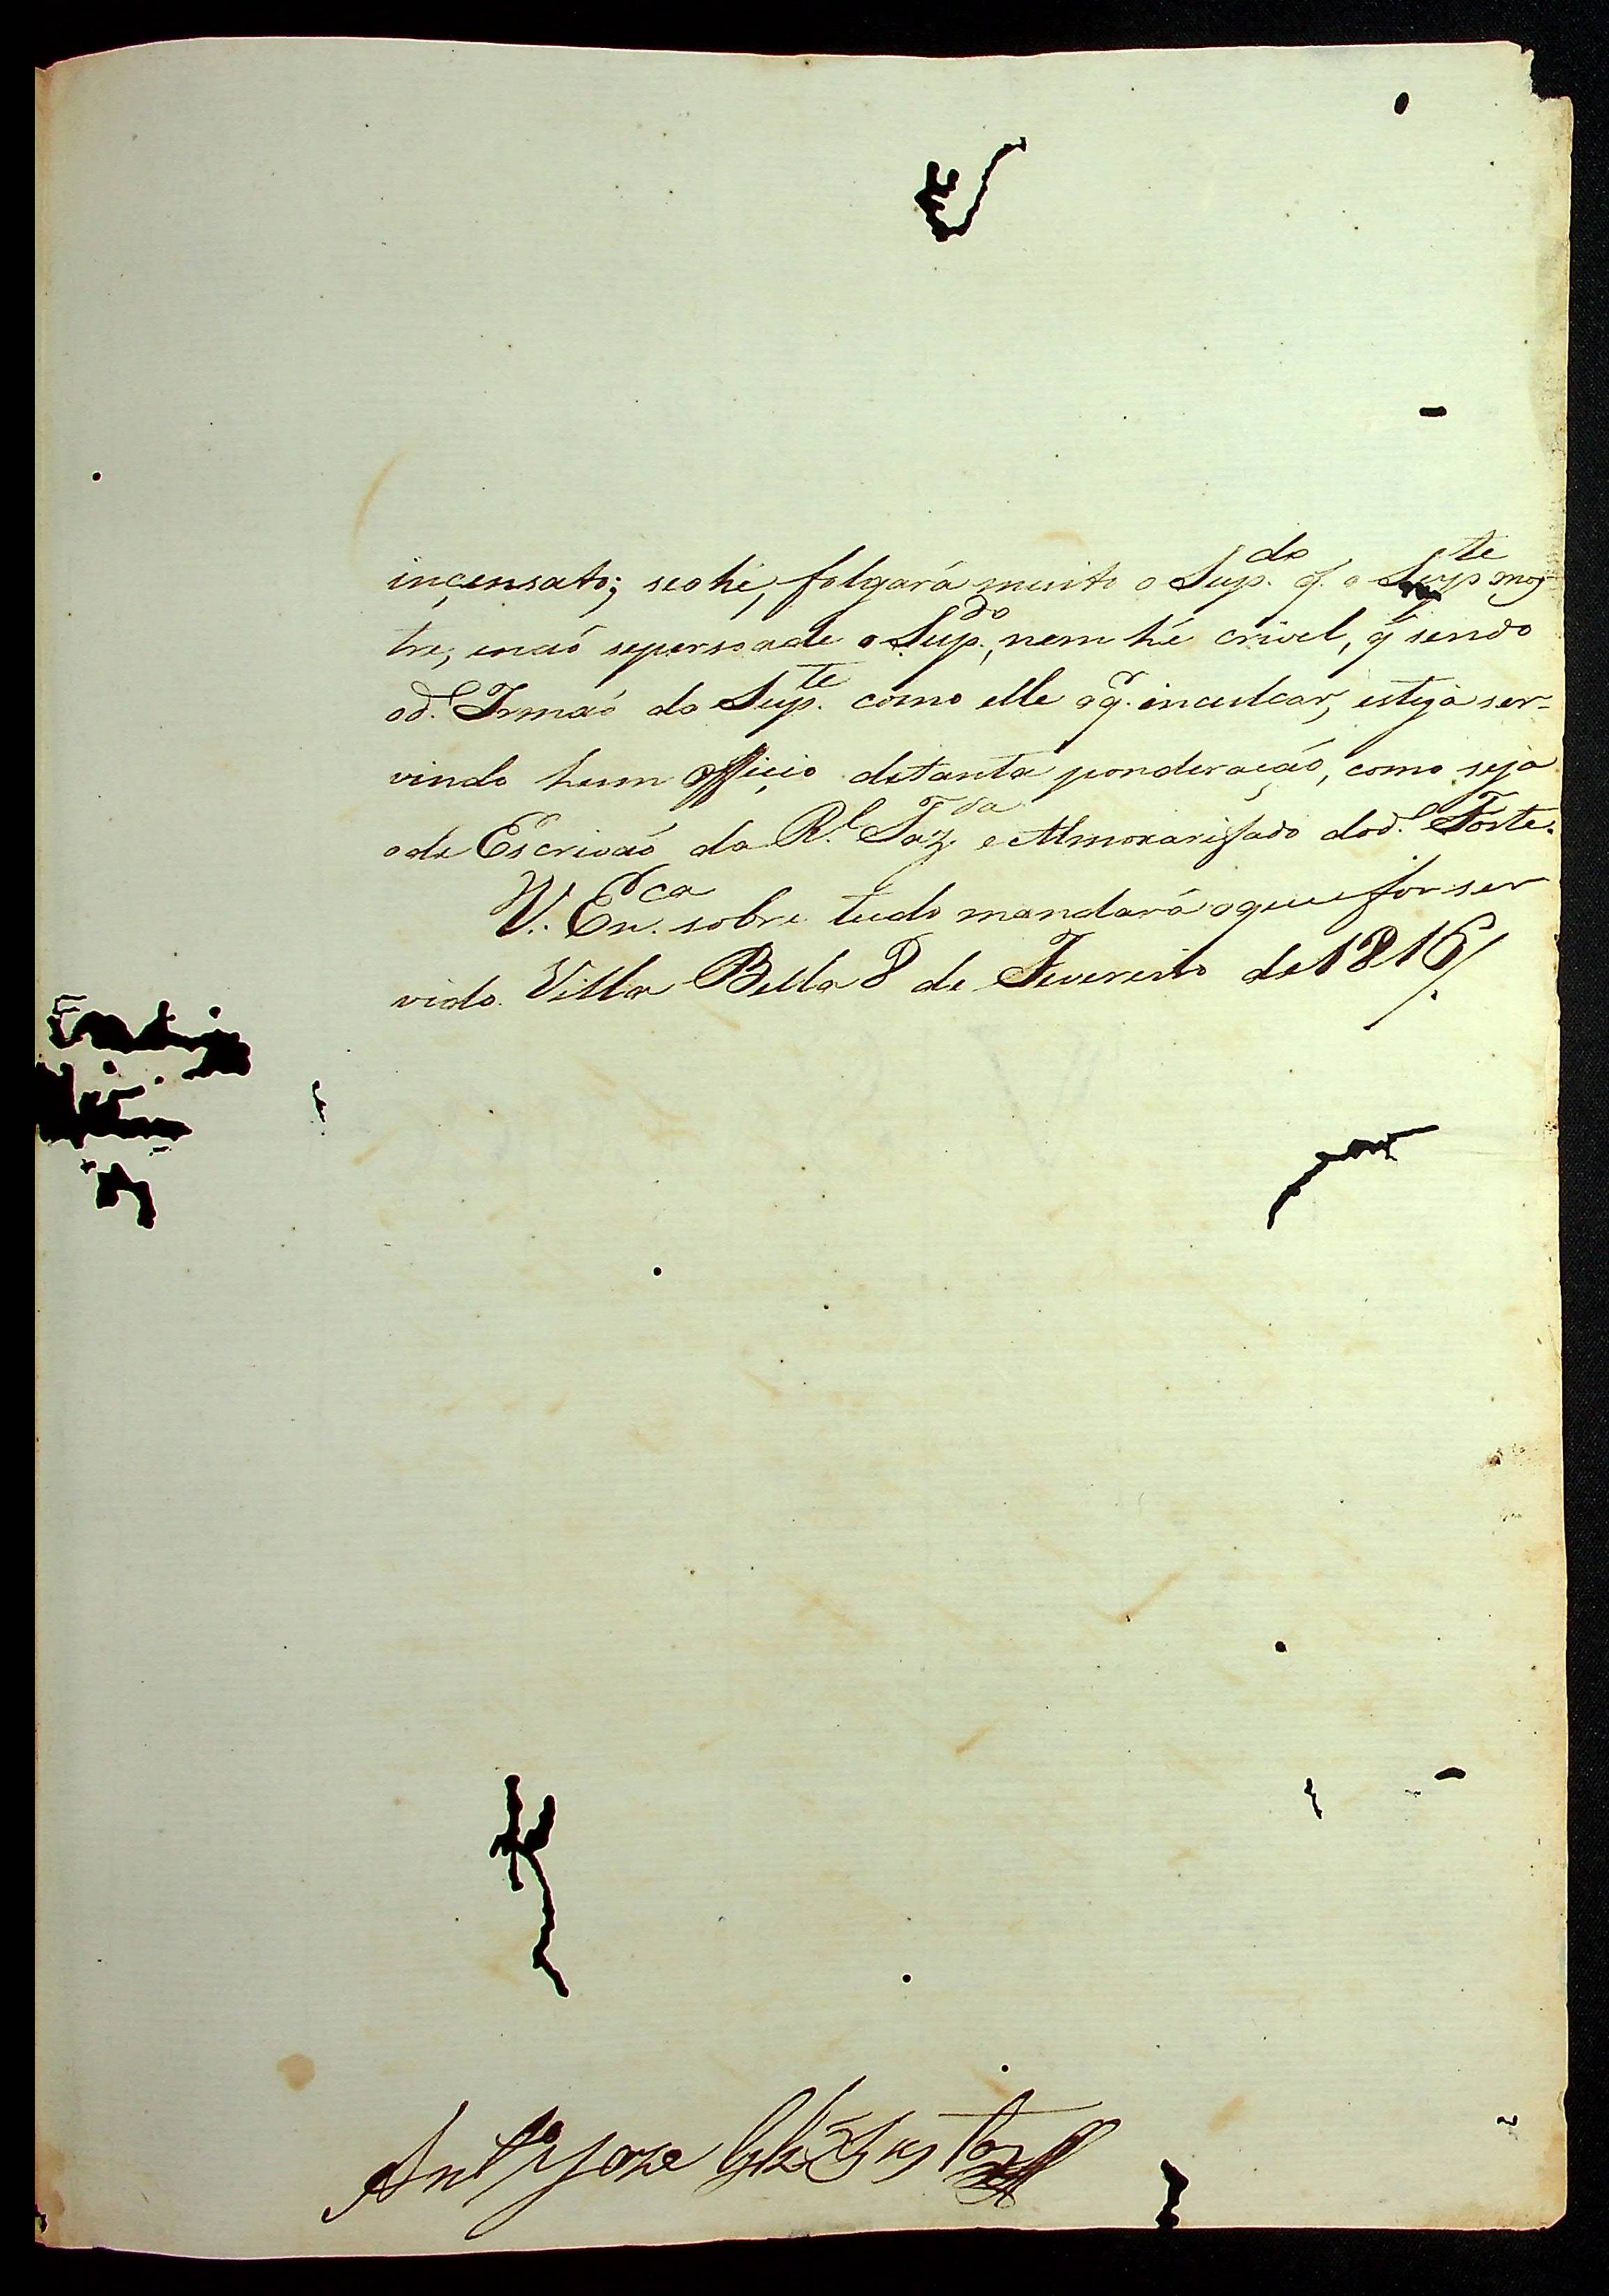 inçensato; se o hé, folgará muito o Sup.do q. o Sup.te mos
tre; e naõ se persoade o Sup.do, nem hé crivel, q̃ sendo
o d.o Irmaõ do Sup.te como elle o q.r inculcar, esteja ser-
vindo hum offiçio de tanta ponderaçaõ, como seja
o de Escrivaõ da R.l Faz.da e Almoxarifado do d.o Forte.
V. Ex.ca sobre tudo mandará o que for ser
vido. Villa Bella 8 de Fevereiro de 1816/.
Ant.o Joze